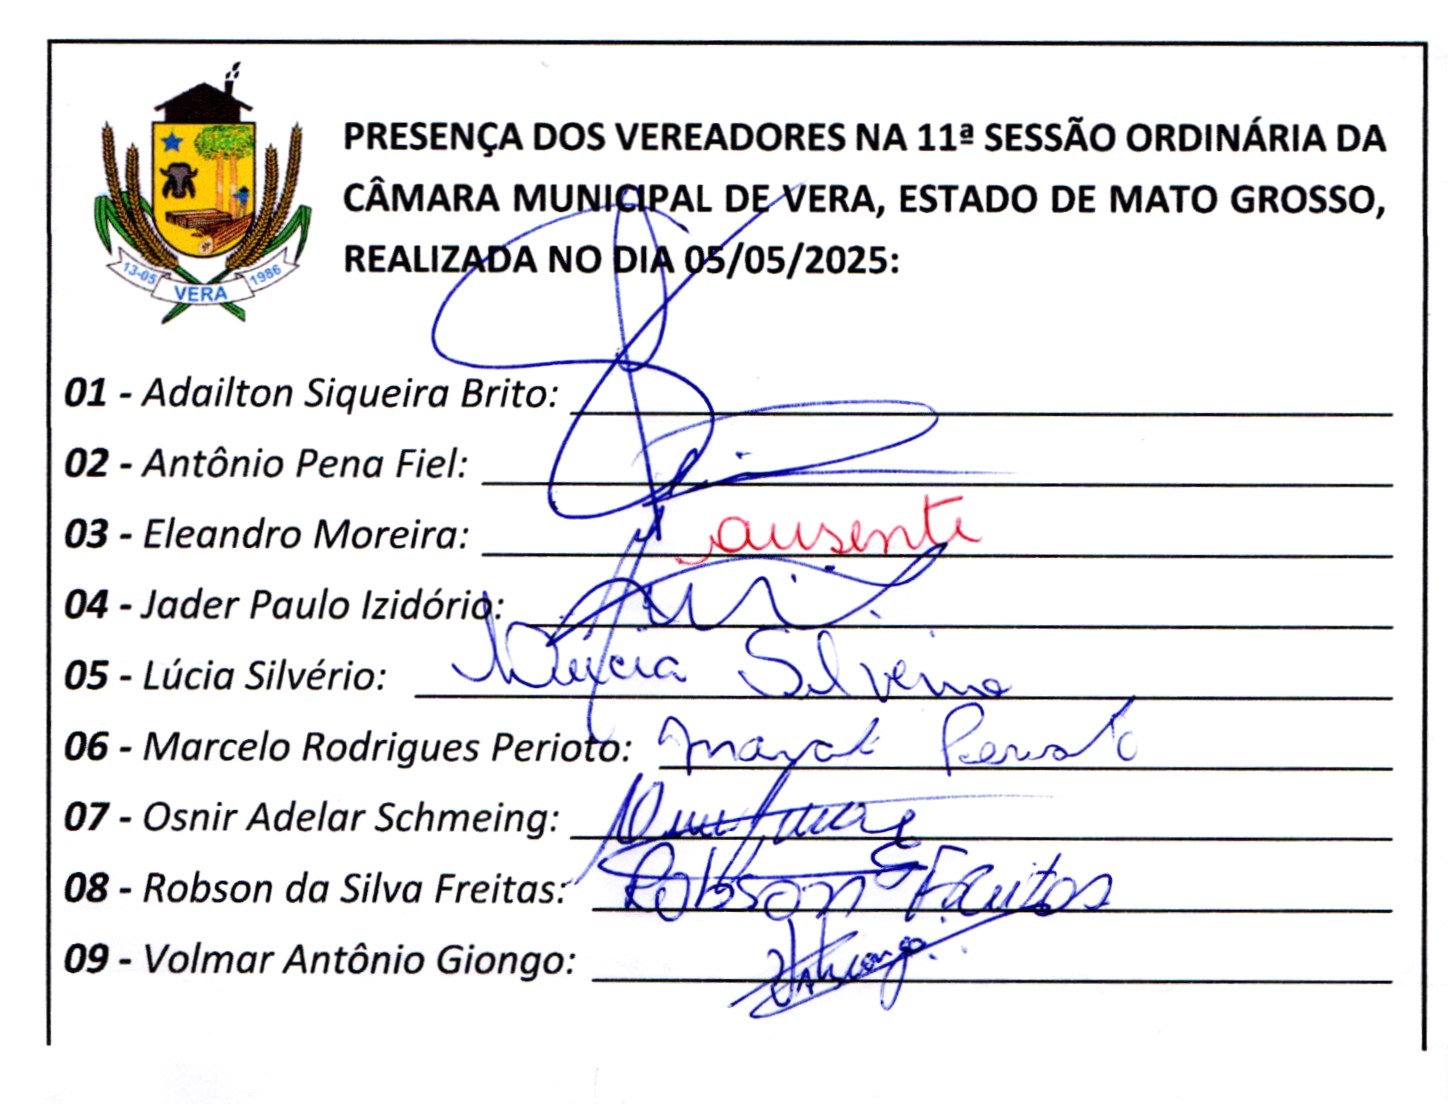 PRESENÇA DOS VEREADORES NA 11ª SESSÃO ORDINÁRIA DA
CÂMARA MUNICIPAL DE VERA, ESTADO DE MATO GROSSO,
REALIZADA NO DIA 05/05/2025:
13-05 VERA 1986
01 - Adailton Siqueira Brito:
02 - Antônio Pena Fiel:
03 - Eleandro Moreira: ausente
04 - Jader Paulo Izidório:
05 - Lúcia Silvério: Lúcia Silvério
06 - Marcelo Rodrigues Perioto:
07 - Osnir Adelar Schmeing:
08 - Robson da Silva Freitas: Robson S Freitas
09 - Volmar Antônio Giongo: